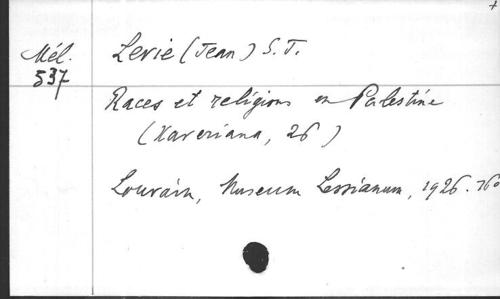 Mél.
537
Levie (Jean) S.J.
Races et religions en Palestine
(Xaveriana, 26)
Louvain, Museum Lessianum, 1926. 16°